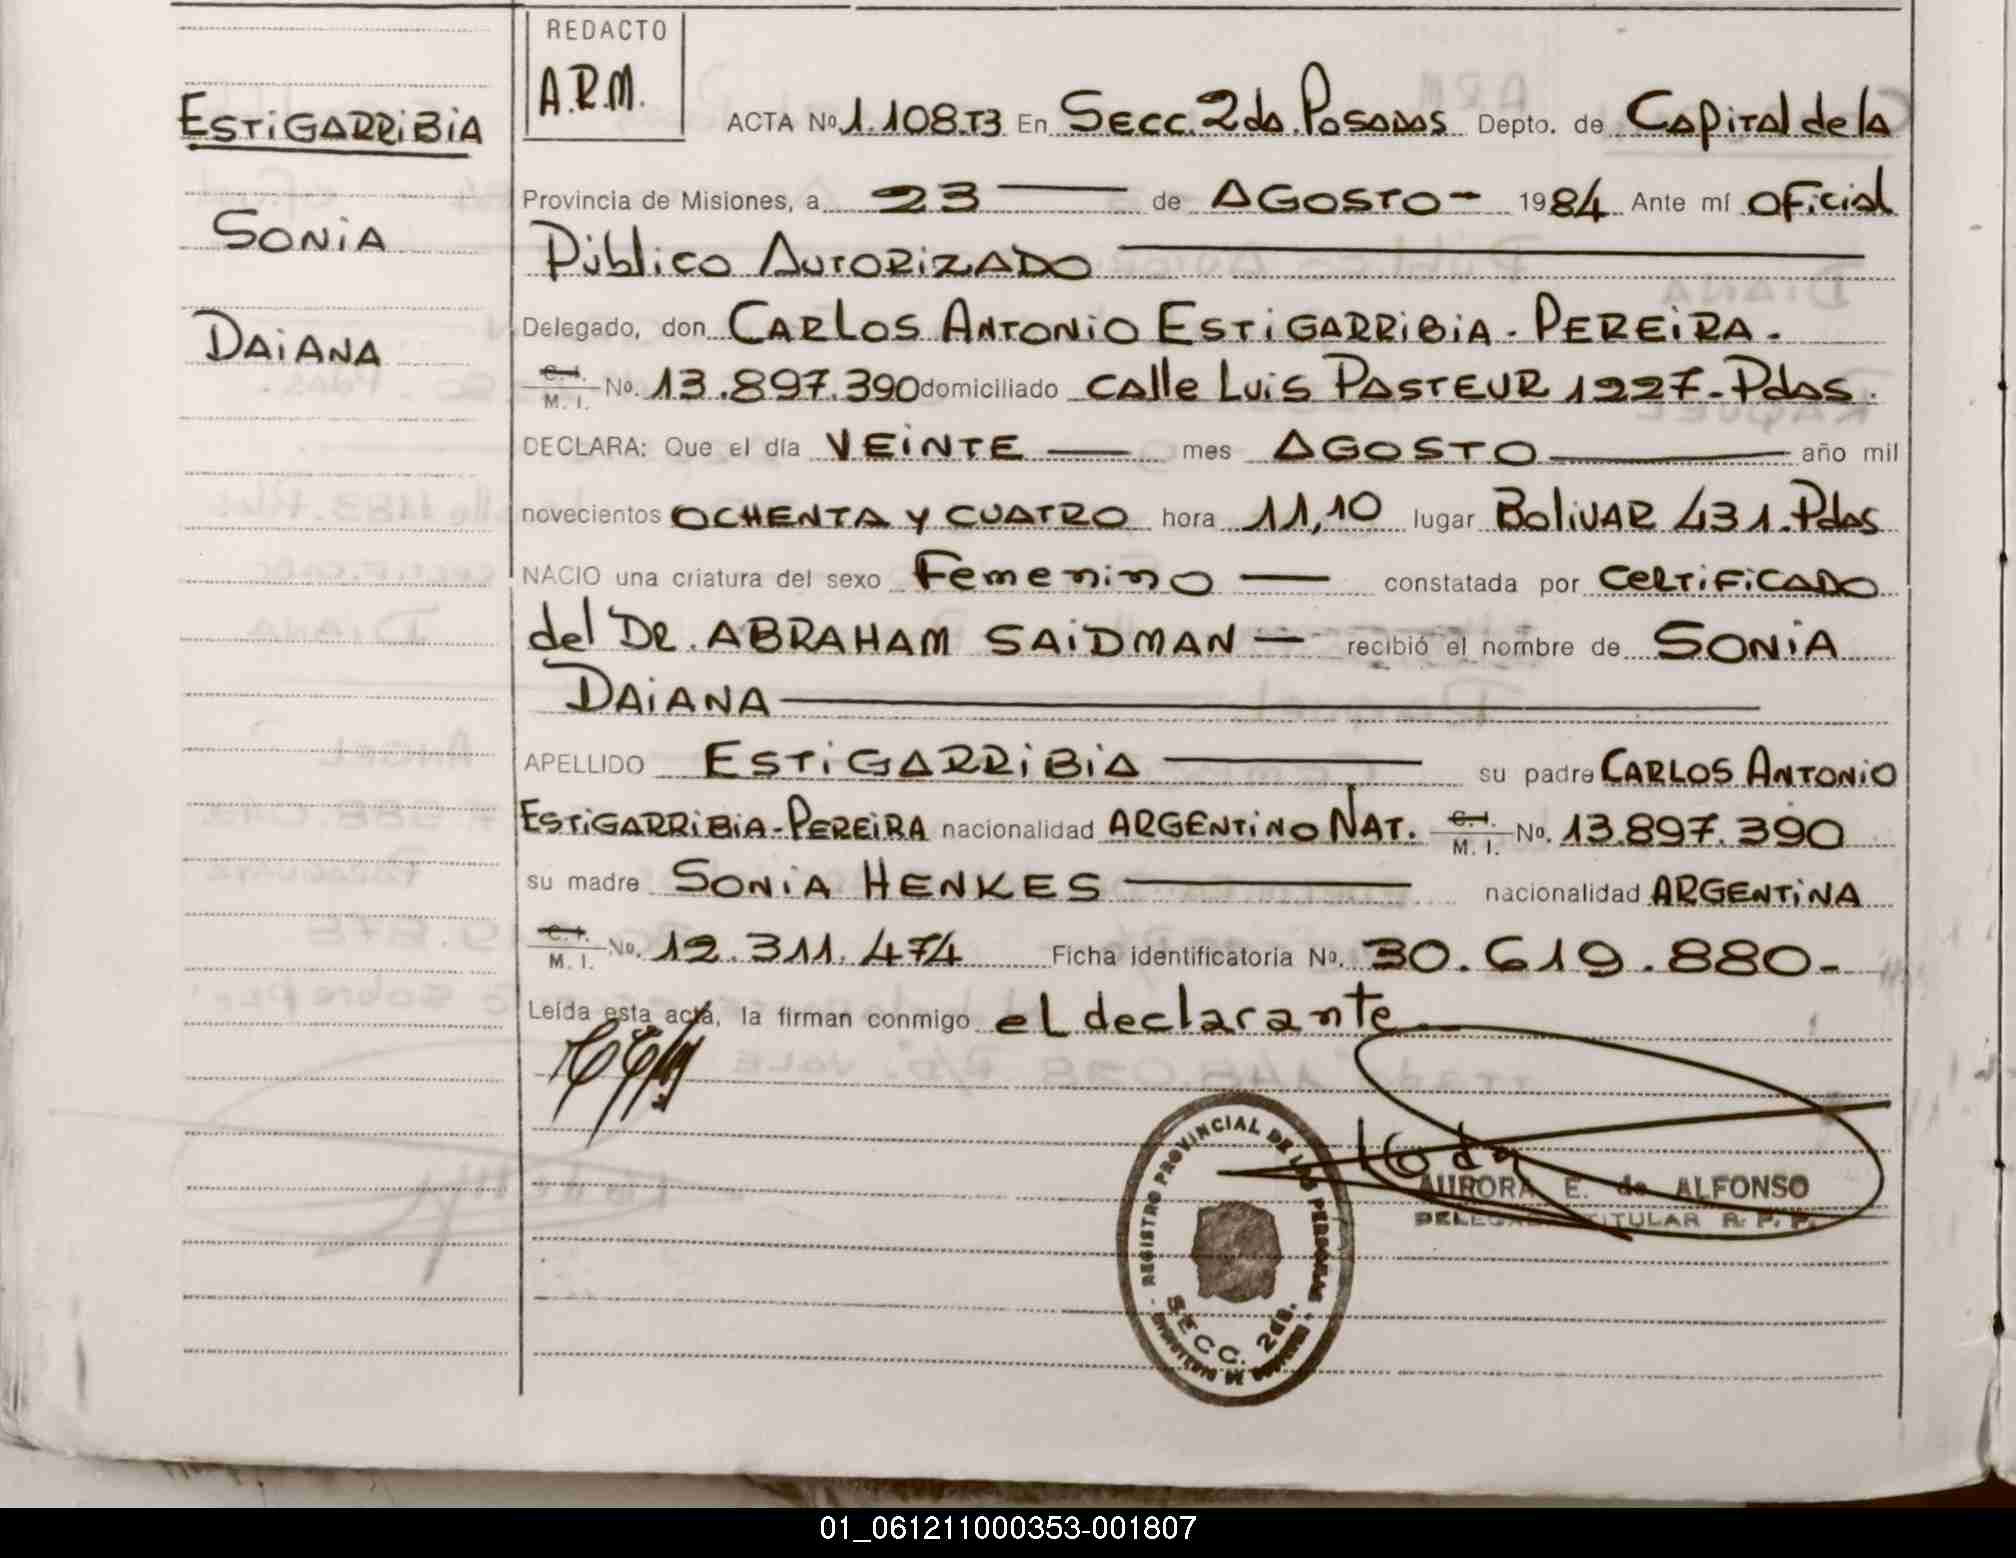 ESTIGARRIBIA
SONIA
DAIANA
REDACTO
A.R.M.
ACTA Nº 1.108.T3 En Secc. 2da. Posadas Depto. de Capital de la
Provincia de Misiones, a 23 de AGOSTO - 1984 Ante mí oficial
Público AUTORIZADO
Delegado, don CARLOS ANTONIO ESTIGARRIBIA - PEREIRA.
C. I.
M. I. No. 13.897.390 domiciliado calle Luis PASTEUR 1227 - Pdas.
DECLARA: Que el día VEINTE mes AGOSTO año mil
novecientos OCHENTA Y CUATRO hora 11,10 lugar BOLIVAR 431. Pdas
NACIO una criatura del sexo Femenino constatada por CERTIFICADO
del DR. ABRAHAM SAIDMAN — recibió el nombre de SONIA
DAIANA
APELLIDO ESTIGARRIBIA su padre CARLOS ANTONIO
ESTIGARRIBIA - PEREIRA nacionalidad ARGENTINO NAT. C. I. M. I. Nº. 13.897.390
su madre SONIA HENKES nacionalidad ARGENTINA
C. I.
M. I. No. 12.311.474 Ficha identificatoria Nº. 30.619.880-
Leída esta acta, la firman conmigo el declarante
REGISTRO PROVINCIAL DE LAS PERSONAS
SECC. 2da.
AURORA E. de ALFONSO
DELEGADA TITULAR R. P. P.
01_061211000353-001807